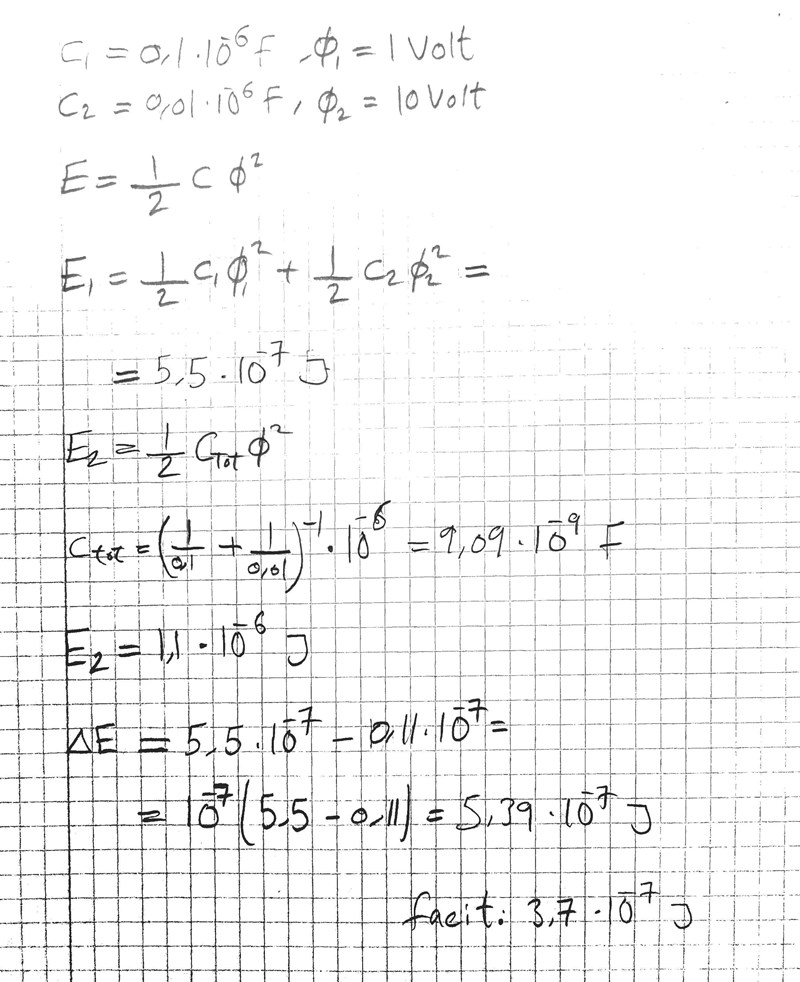 C₁ = 0,1·10⁻⁶ F, ϕ₁ = 1 Volt
C₂ = 0,01·10⁻⁶ F, ϕ₂ = 10 Volt
E = 1/2 C ϕ²
E₁ = 1/2 C₁ϕ₁² + 1/2 C₂ϕ₂² =
= 5,5·10⁻⁷ J
E₂ = 1/2 C_Tot ϕ²
C_tot = (1/0,1 + 1/0,01)⁻¹·10⁻⁶ = 9,09·10⁻⁹ F
E₂ = 1,1·10⁻⁶ J
ΔE = 5,5·10⁻⁷ − 0,11·10⁻⁷ =
= 10⁻⁷(5,5 − 0,11) = 5,39·10⁻⁷ J
facit: 3,7·10⁻⁷ J